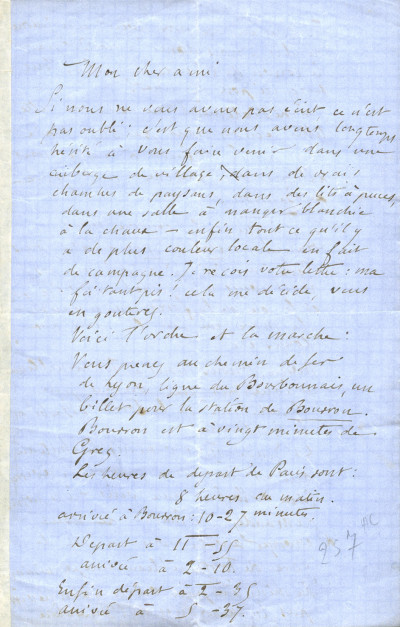 Mon cher ami
Si nous ne vous avons pas écrit ce n'est
pas oubli ; c'est que nous avons longtemps
hésité à vous faire venir dans une
auberge de village, dans de vrais
chambres de paysans, dans des lits à puces,
dans une salle à manger blanchie
à la chaux – enfin tout ce qu'il y
a de plus couleur locale en fait
de campagne. Je reçois votre lettre : ma
foi tant pis ! cela me décide, vous
en gouterez.
Voici l'ordre et la marche :
Vous prenez au chemin de fer
de Lyon ligne du Bourbonnais, un
billet pour la station de Bourron.
Bourron est à vingt minutes de
Grez.
Les heures de depart de Paris sont :
8 heures du matin.
arrivée à Bourron : 10-27 minutes.
Depart à 11-55
arrivée à 2-10.
Enfin départ à 2-35
arrivée à 5-37.
237